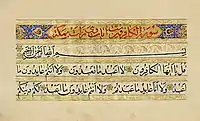 سورة الكافرون ست آيات مكية
بسم الله الرحمن الرحيم
قل يا أيها الكافرون لا أعبد ما تعبدون ولا أنتم عابدون ما
أعبد ولا أنا عابد ما عبدتم ولا أنتم عابدون ما أعبد لكم